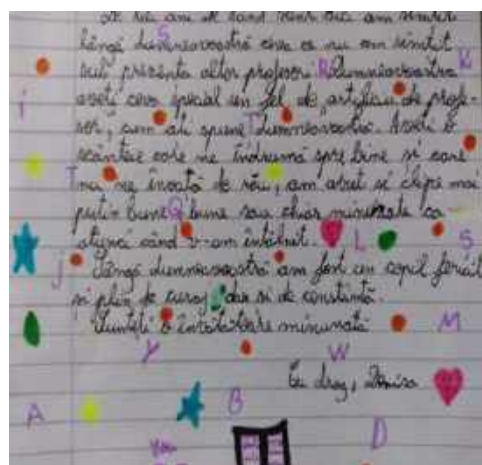 de trei ani de când sunt aici am simțit
lângă dumneavoastră ceva ce nu am simțit
sub prezența altor profesori. Dumneavoastră
aveți ceva special un fel de "artificiu" de profe-
sor, cum ați spune dumneavoastră. Aveți o
scânteie care ne îndrumă spre bine și care
nu ne învață de rău, am avut și clipe mai
puțin bune, bune sau chiar minunate ca
atunci când v-am întâlnit.
Lângă dumneavoastră am fost un copil fericit
și plin de curaj dar și de constanță.
Sunteți o învățătoare minunată
Cu drag,
S
R
K
i
T
T
Q
L
S
J
M
Y
W
A
B
D